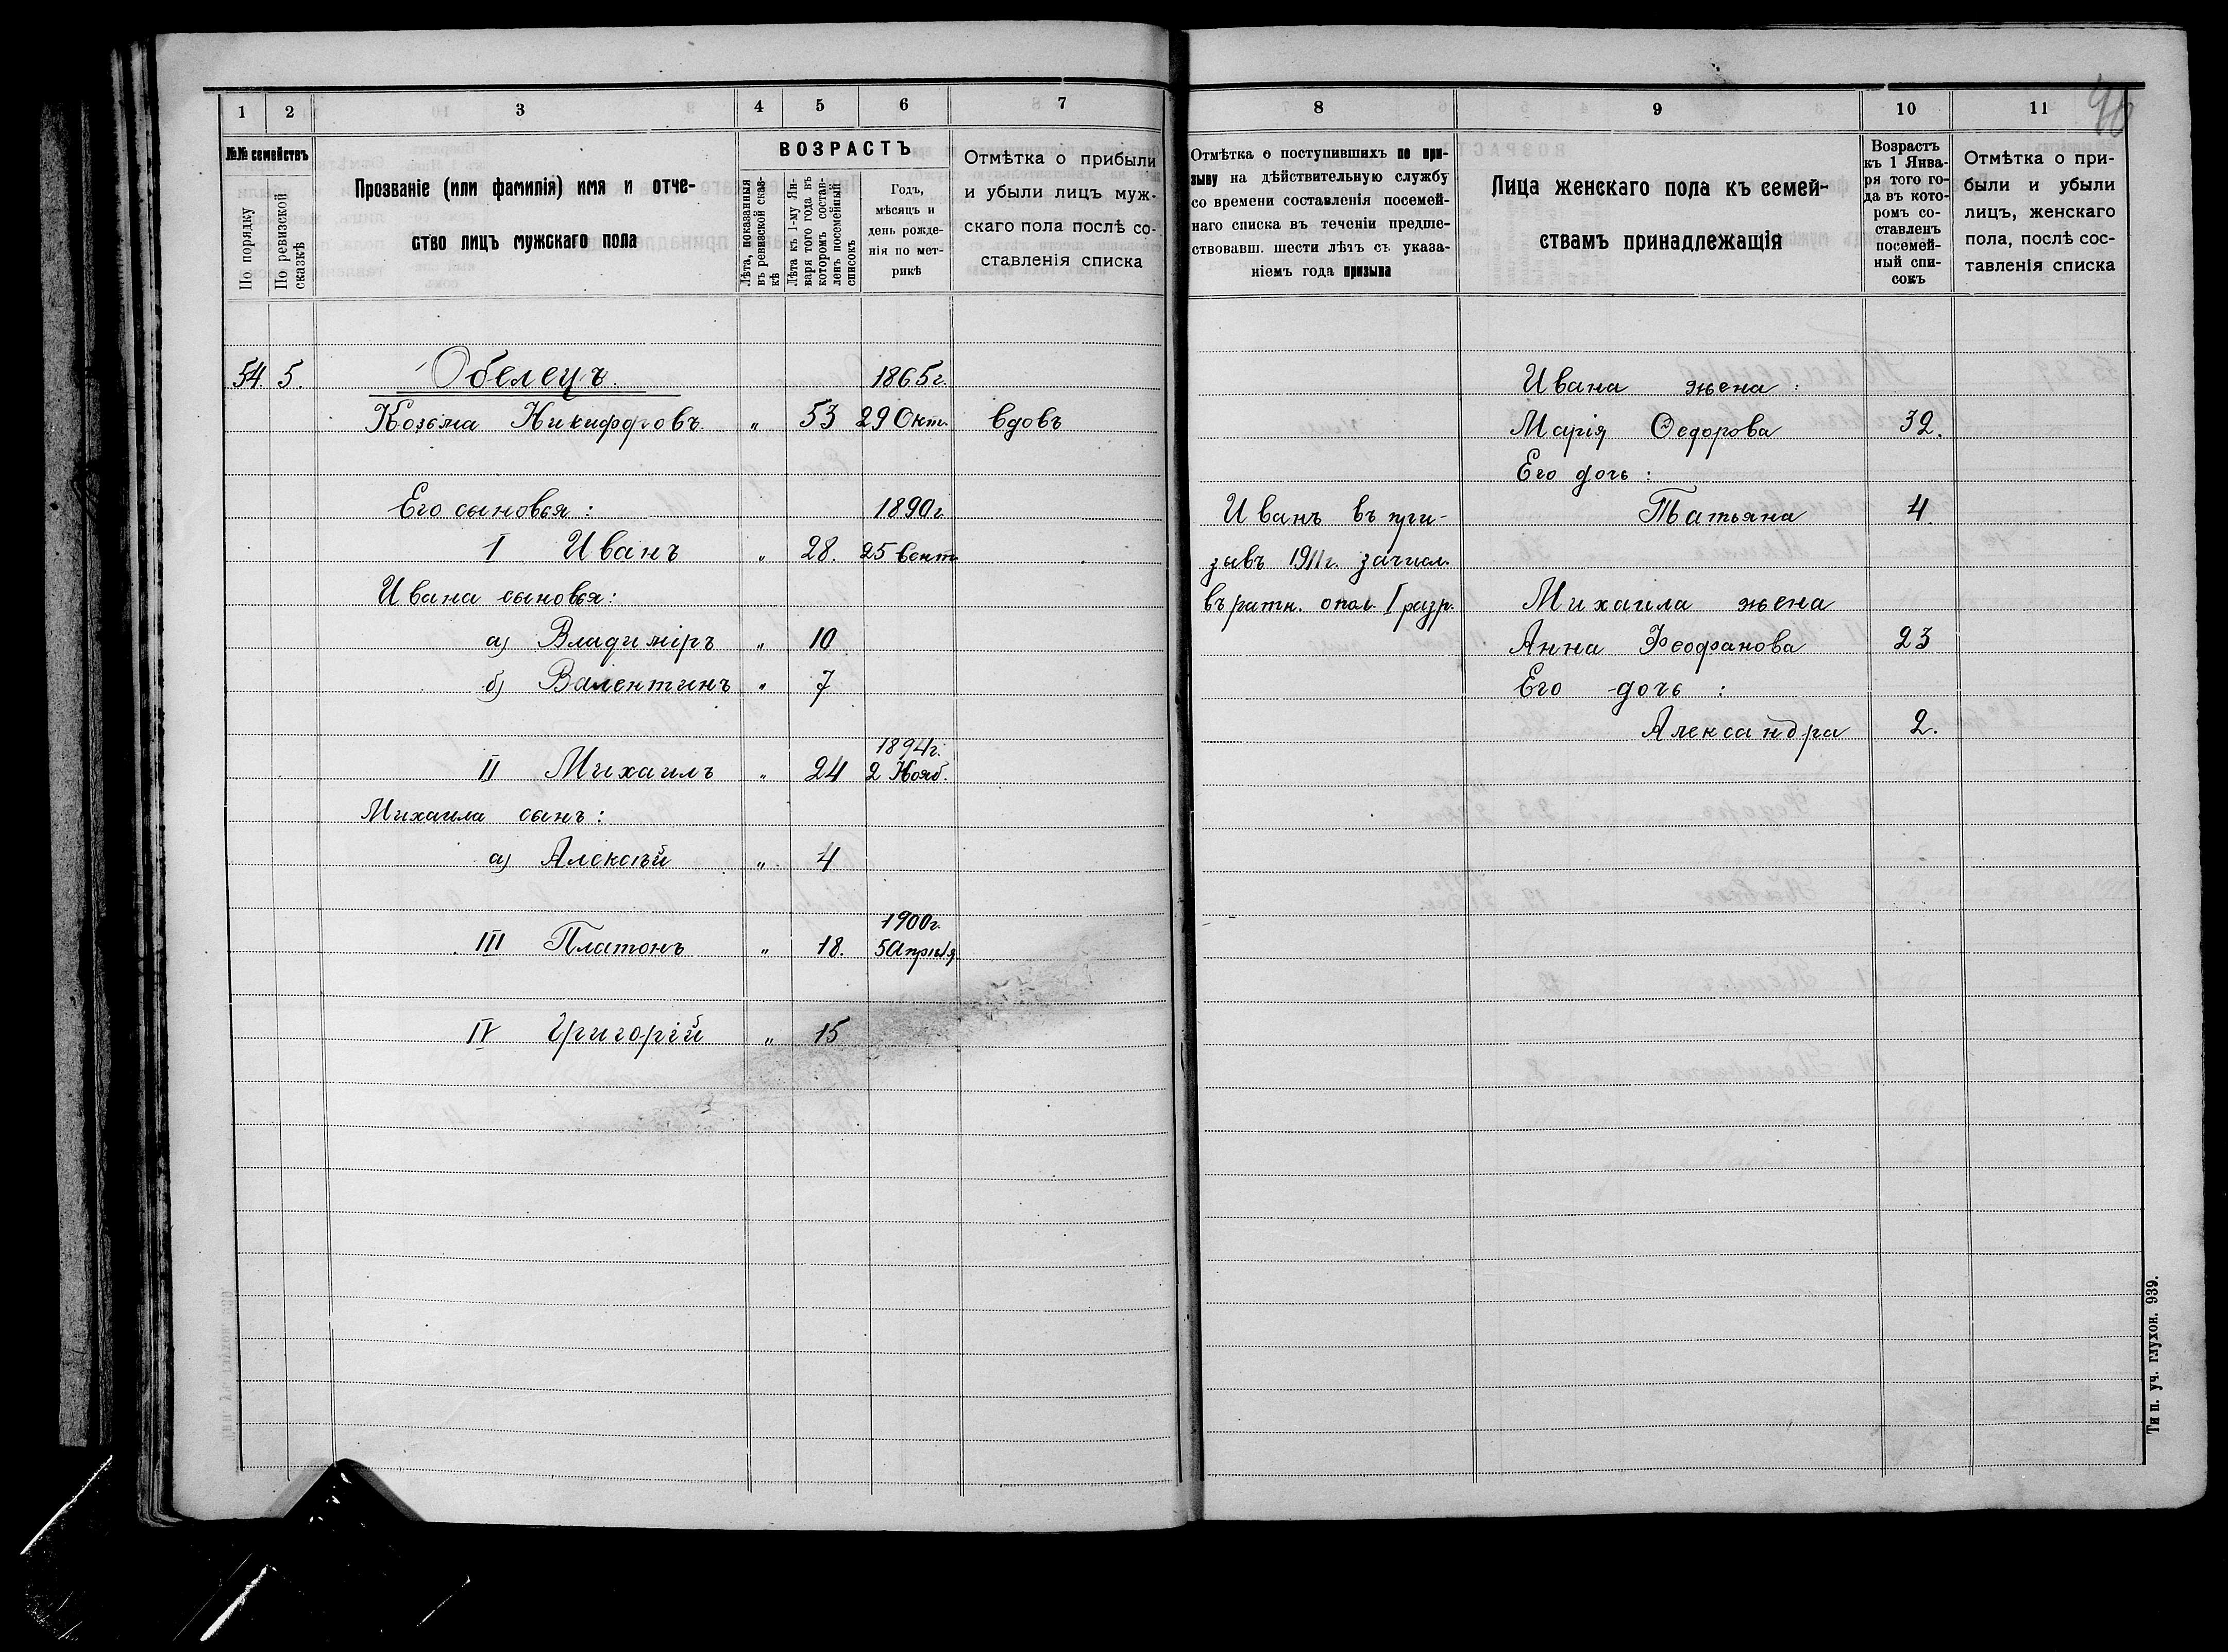 1 2 3 4 5 6 7
№№ семействъ
По порядку
По ревизской сказкѣ
Прозваніе (или фамилія) имя и отче-
ство лицъ мужскаго пола
ВОЗРАСТЪ
Лѣта, показанныя
въ ревизской сказ-
кѣ
Лѣта къ 1-му Ян-
варя того года въ
которомъ состав-
ленъ посемейный
списокъ
Годъ,
мѣсяцъ и
день рожде-
нія по мет-
рикѣ
Отмѣтка о прибыли
и убыли лицъ муж-
скаго пола послѣ со-
ставленія списка
54. 5. Обелецъ. 1865г.
Козьма Никифоровъ. „ 53 29 Окт. вдовъ
Его сыновья: 1890г
I Иванъ „ 28. 25 Сент.
Ивана сыновья:
а) Владиміръ „ 10
б) Валентинъ „ 7
1894г.
II Михаилъ „ 24 2 Нояб.
Михаила сынъ:
а) Алексѣй „ 4
1900г.
III Платонъ „ 18. 5 Апрѣля
IV Григорій „ 15
8 9 10 11
Отмѣтка о поступившихъ по при-
зыву на дѣйствительную службу
со времени составленія посемей-
наго списка въ теченіи предше-
ствовавш. шести лѣтъ съ указа-
ніемъ года призыва
Лица женскаго пола къ семей-
ствамъ принадлежащія
Возрастъ
къ 1 Янва-
ря того го-
да въ кото-
ромъ со-
ставленъ
посемей-
ный спи-
сокъ
Отмѣтка о при-
были и убыли
лицъ, женскаго
пола, послѣ сос-
тавленія списка
Ивана жена:
Марія Ѳедорова 32.
Его дочь:
Иванъ въ при- Татьяна 4
зывъ 1911г. зачисл.
въ ратн. опол. I разр. Михаила жена
Анна Феофанова 23
Его дочь:
Александра 2.
Тип. уч. глухон. 939.